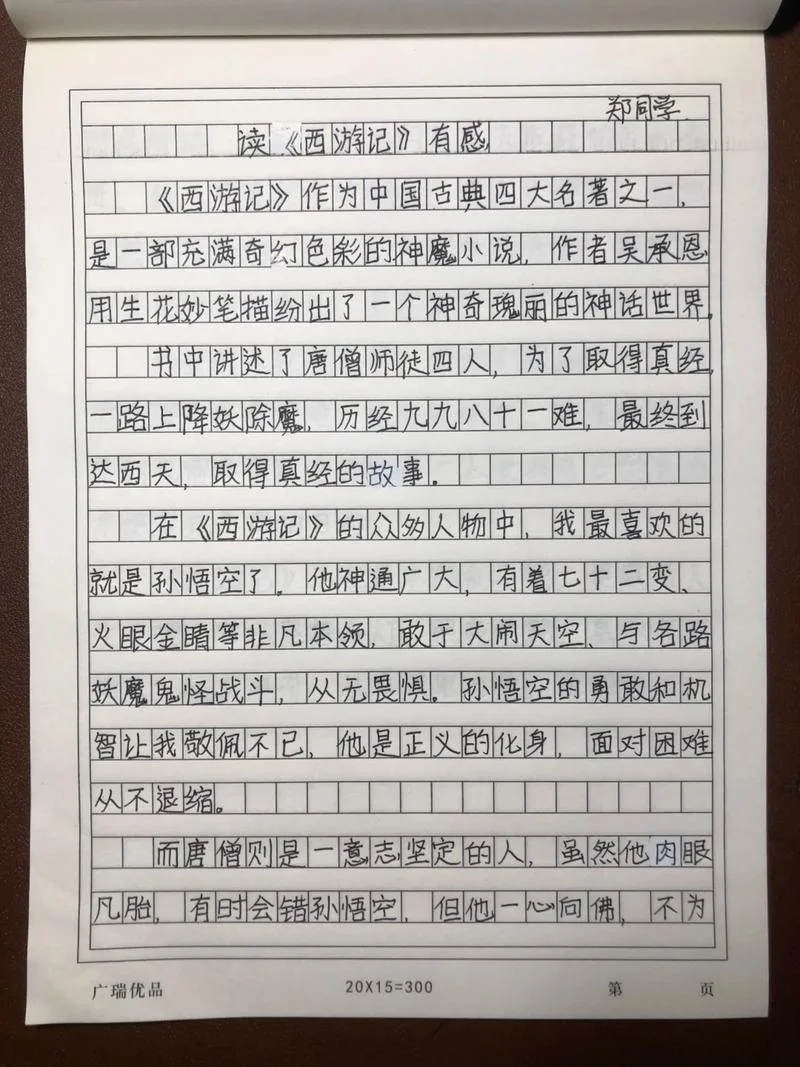 郑同学.
读《西游记》有感
《西游记》作为中国古典四大名著之一,
是一部充满奇幻色彩的神魔小说,作者吴承恩
用生花妙笔描纷出了一个神奇瑰丽的神话世界。
书中讲述了唐僧师徒四人,为了取得真经,
一路上降妖除魔,历经九九八十一难,最终到
达西天,取得真经的故事。
在《西游记》的众多人物中,我最喜欢的
就是孙悟空了。他神通广大,有着七十二变、
火眼金睛等非凡本领,敢于大闹天空、与各路
妖魔鬼怪战斗,从无畏惧。孙悟空的勇敢和机
智让我敬佩不已,他是正义的化身,面对困难
从不退缩。
而唐僧则是一意志坚定的人,虽然他肉眼
凡胎,有时会错孙悟空,但他一心向佛,不为
广瑞优品
20X15=300
第 页